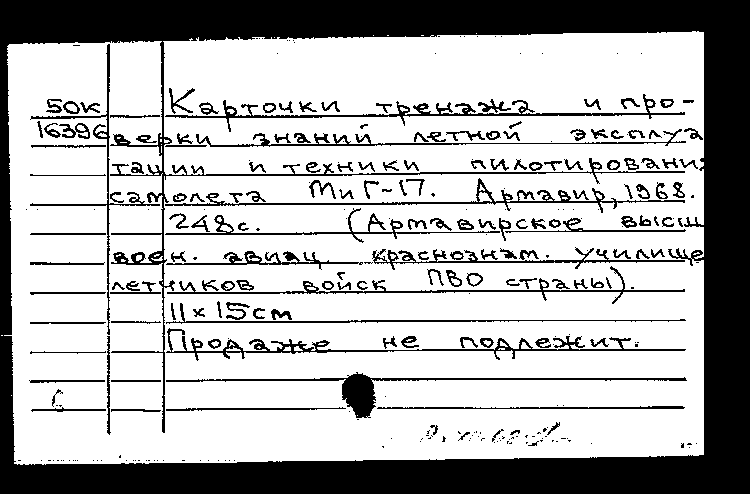 50К Карточки тренажа и про-
16396 верки знаний летной эксплуа
тации и техники пилотировани
самолета МиГ-17. Армавир, 1968.
248с. (Армавирское высш
воен. авиац. краснознам. училище
летчиков войск ПВО страны).
11 x 15 см
Продаже не подлежит.
6